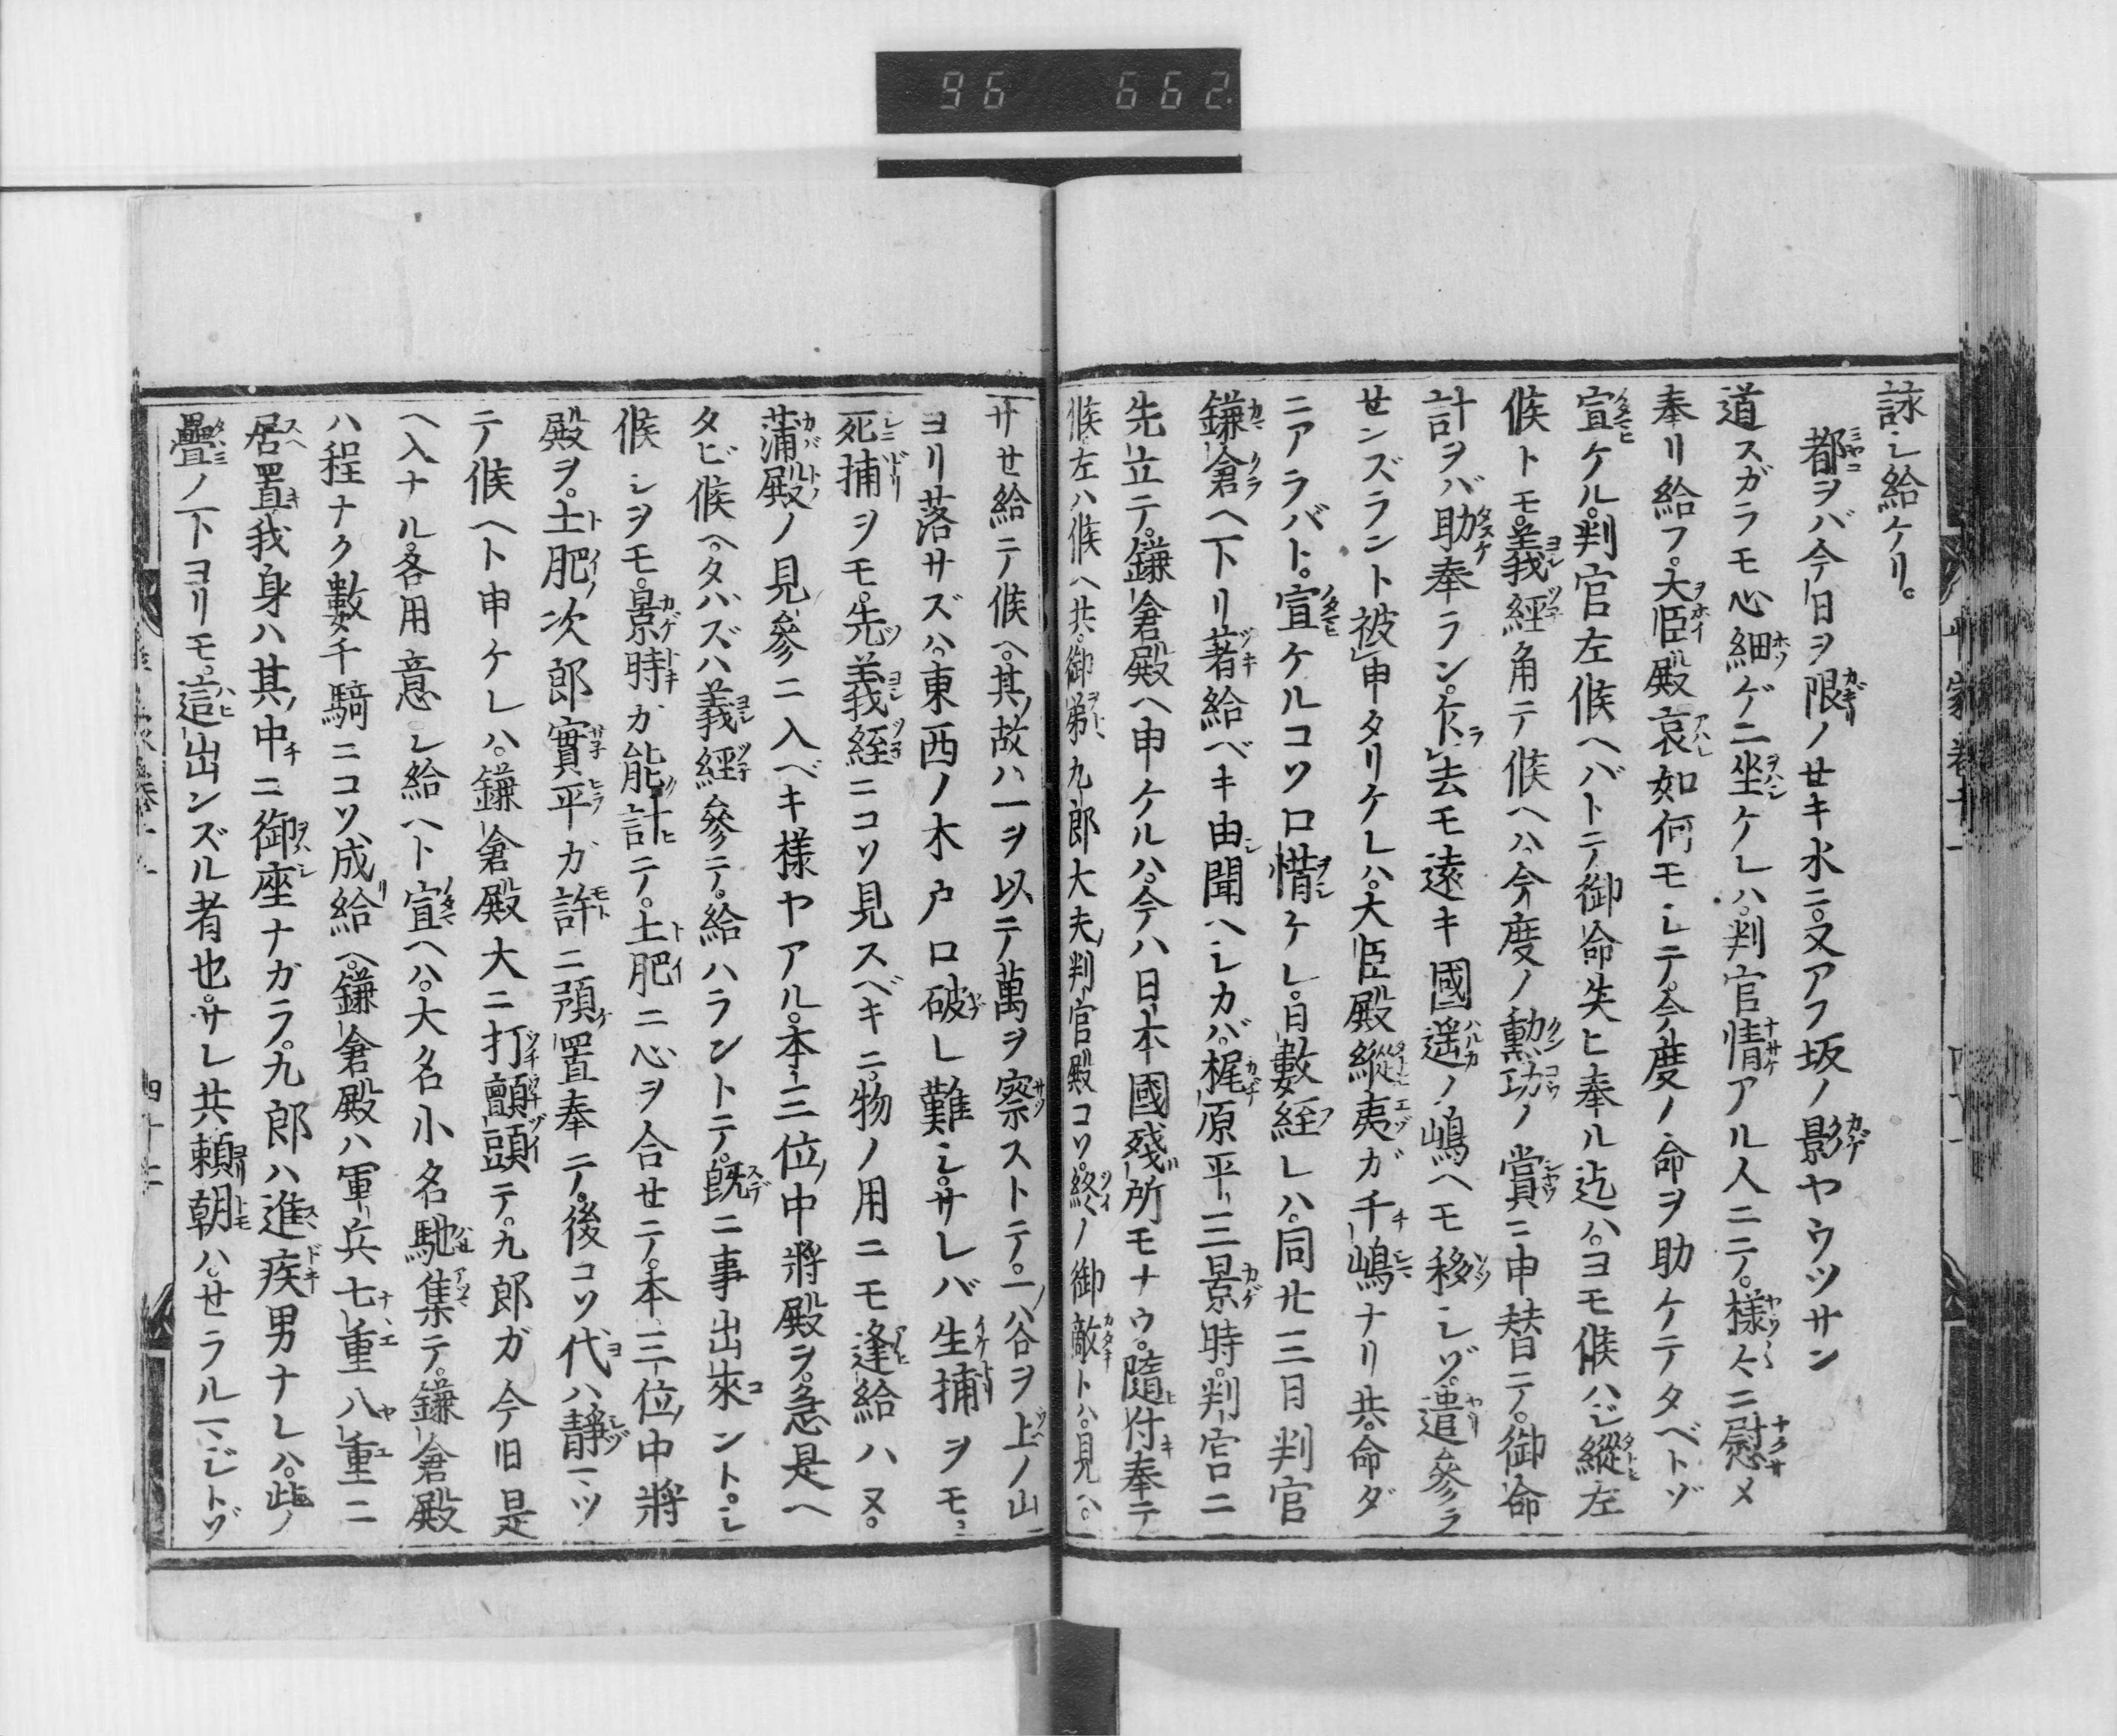 96 662
詠シ給ケリ。
都ヲバ今日ヲ限ノセキ水ニ。又アフ坂ノ影ヤウツサン
道スガラモ心細ゲニ坐ケレハ。判官情アル人ニテ。樣々ニ慰メ
奉リ給フ。大臣殿哀如何モシテ。今度ノ命ヲ助ケテタベトゾ
宣ケル。判官左候ヘバトテ御命失ヒ奉ル迄ハ。ヨモ候ハジ縱左
候トモ。義經角テ候ヘハ。今度ノ勳功ノ賞ニ申替テ。御命
計ヲバ助奉ラン。去モ遠キ國遥ノ嶋ヘモ移シゾ。遣參ラ
せンズラント被申タリケレハ。大臣殿縱夷ガ千嶋ナリ共。命ダ
ニアラバト。宣ケルコソ口惜ケレ。日數經レハ。同廿三日判官
鎌倉ヘ下リ著給ベキ由聞ヘシカバ。梶原平三景時。判官ニ
先立テ。鎌倉殿ヘ申ケルハ。今ハ日本國殘所モナウ。隨付奉テ
候。左ハ候ヘ共。御弟九郎大夫判官殿コソ。終ノ御敵トハ。見ヘ。
サせ給テ候ヘ。其故ハ一ヲ以テ萬ヲ察ストテ。一ノ谷ヲ上ノ山
ヨリ落サズハ。東西ノ木戸口破レ難シ。サレバ生捕ヲモ。
死捕ヲモ。先義經ニコソ見スベキニ。物ノ用ニモ逢給ハヌ。
蒲殿ノ見參ニ入ベキ樣ヤアル。本三位ノ中將殿ヲ。急是ヘ
タビ候ヘ。タハズハ義經參テ。給ハラントテ。既ニ事出來ントシ
候シヲモ。景時ガ能計テ。土肥ニ心ヲ合せテ。本三位ノ中將
殿ヲ。土肥ノ次郎實平ガ許ニ預置奉テ。後コソ代ハ靜マツ
テ候ヘト申ケレハ。鎌倉殿大ニ打顫頭テ。九郎ガ今日是
ヘ入ナル。各用意シ給ヘト宣ヘハ。大名小名馳集テ。鎌倉殿
ハ程ナク數千騎ニコソ成給ヘ。鎌倉殿ハ軍兵七重八重ニ
居置我身ハ其中ニ御座ナガラ。九郎ハ進疾男ナレハ。此ノ
疊ノ下ヨリモ。這出ンズル者也。サレ共賴朝ハ。せラルマジトゾ